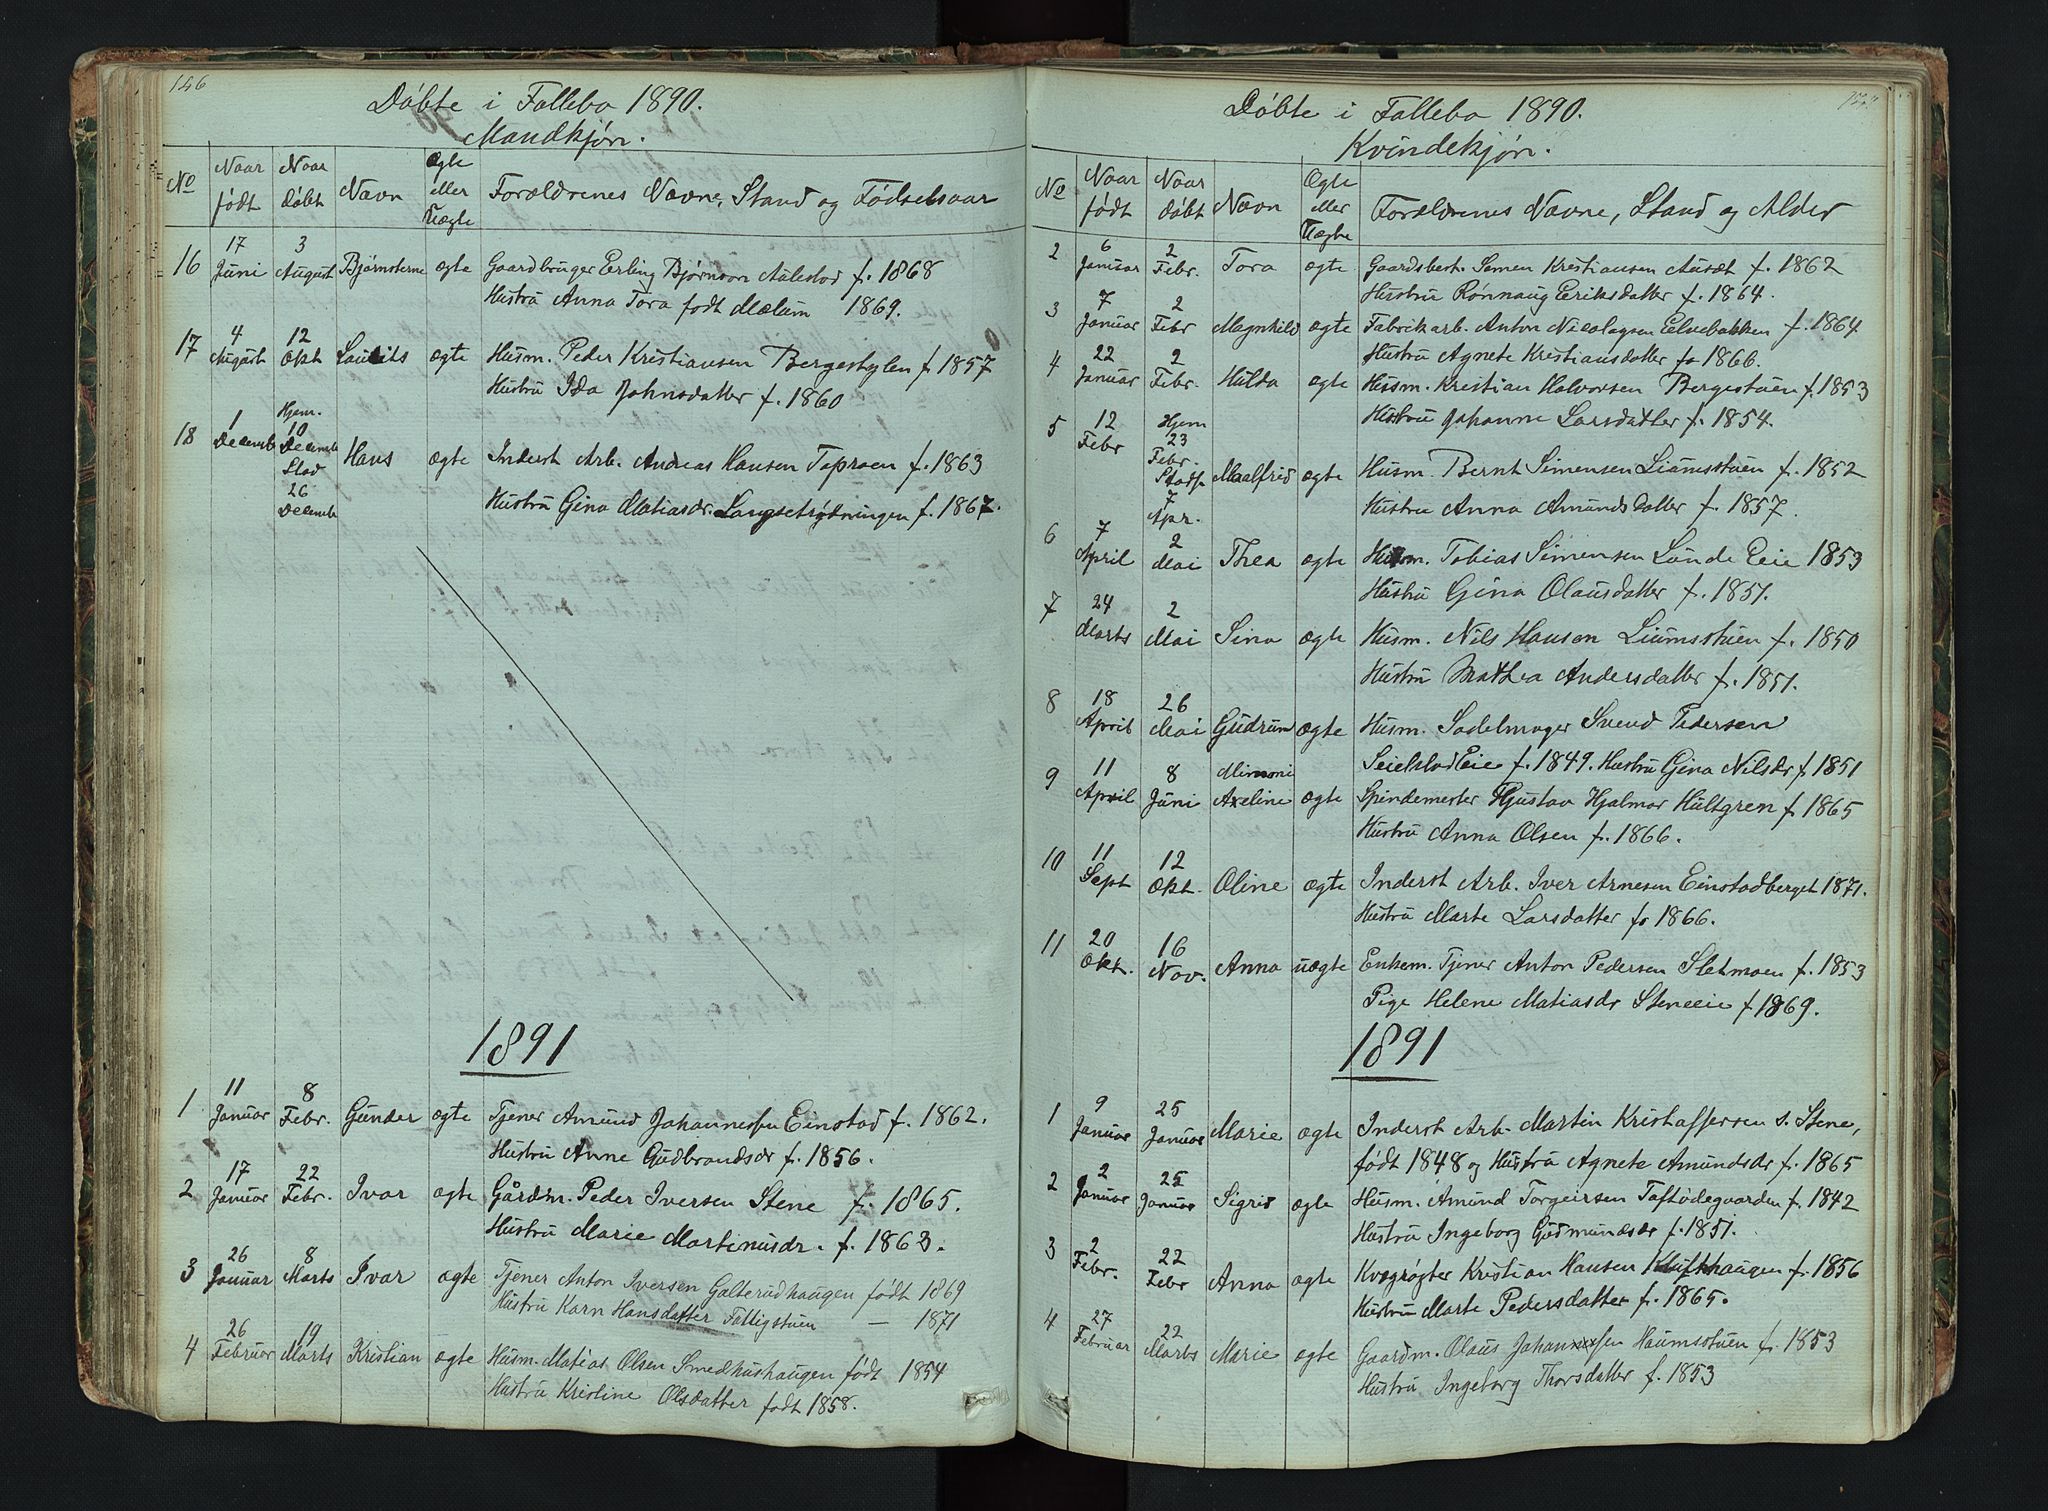 146
Døbte i Follebo 1890.
Mandkjøn.
No
Naar født
Naar døbt
Navn
Ægte eller Uægte
Forældrenes Navne, Stand og Fødselsaar
16 17 Juni 3 August Bjørnsterne ægte Gaardbruger Erling Bjørnson Aulestad f. 1868
Hustru Anna Tora født Mælum 1869.
17 4 August 12 Okt Laurits ægte Husm. Peder Kristiansen Bergestylen f 1857
Hustru Ida Johnsdatter f. 1860
18 1 Decemb Hjem. 10 Decemb Stad 26 Decemb Hans ægte Inderst Arb. Andreas Hansen Toproen f. 1863
Hustru Gina Matiasdr. Langsetrydningen f. 1867.
1891
1 11 Januar 8 Febr. Gunder ægte Tjener Amund Johannessen Einstad f. 1862.
Hustru Anne Gudbrandsdr f. 1856.
2 17 Januar 22 Febr. Ivar ægte Gårdm. Peder Iversen Stene f. 1865.
Hustru Marie Martinusdr. f. 1863.
3 26 Januar 8 Marts Ivar ægte Tjener Anton Iversen Galterudhaugen født 1869
Hustru Karn Hansdatter Fattigstuen — 1871
4 26 Februar 19 Marts Kristian ægte Husm. Matias Olsen Smedhushaugen født 1854
Hustru Kristine Olsdatter født 1858.
Døbte i Follebo 1890.
Kvindekjøn.
No
Naar født
Naar døbt
Navn
Ægte eller Uægte
Forældrenes Navne, Stand og Alder
2 6 Januar 2 Febr. Tora ægte Gaardsbest. Simen Kristiansen Ausæt f. 1862
Hustru Rønnaug Eriksdatter f. 1864.
3 7 Januar 2 Febr Magnhild ægte Fabrikarb. Anton Nicolaysen Elvebakken f. 1864
Hustru Agnete Kristiansdatter f. 1866.
4 22 Januar 2 Febr. Hulda ægte Husm. Kristian Halvorsen Bergestuen f. 1853
Hustru Johanne Larsdatter f. 1854.
5 12 Febr Hjem 23 Febr. Stadf 7 Apr. Maalfrid ægte Husm. Bernt Simensen Liumsstuen f. 1852
Hustru Anna Amundsdatter f. 1857.
6 7 April 2 Mai Thea ægte Husm. Tobias Simensen Lunde Eie 1853
Hustru Gina Olausdatter f. 1851.
7 24 Marts 2 Mai Sina ægte Husm. Nils Hansen Liumsstuen f. 1850
Hustru Mathea Andersdatter f. 1851.
8 18 April 26 Mai Gudrun ægte Husm. Sadelmager Svend Pedersen
Seielstad Eie f. 1849. Hustru Gina Nilsdr f. 1851
9 11 April 8 Juni Mimmi Axeline ægte Spindemester Gustav Hjalmar Hultgren f. 1865
Hustru Anna Olsen f. 1866.
10 11 Sept 12 Okt. Oline ægte Inderst Arb. Iver Arnesen Einstadberget 1871.
Hustru Marte Larsdatter f. 1866.
11 20 Okt. 16 Nov. Anna uægte Enkem. Tjener Anton Pedersen Sletmoen f. 1853
Pige Helene Matiasdr Steneeie f 1869.
1891
1 9 Januar 25 Januar Marie ægte Inderst Arb. Martin Kristoffersen s. Stene,
født 1848 og Hustru Agnete Amundsdr f. 1865
2 2 Januar 25 Januar Sigrid ægte Husm. Amund Torgeirsen Toftødegaarden f. 1842
Hustru Ingeborg Gudmundsdr f. 1851.
3 2 Febr. 22 Febr Anna ægte Kvægrøgter Kristian Hansen Klufthaugen f. 1856
Hustru Marte Pedersdatter f. 1865.
4 27 Februar 22 Marts Marie ægte Gaardm. Olaus Johannessen Haumsstuen f. 1853
Hustru Ingeborg Thorsdatter f. 1853